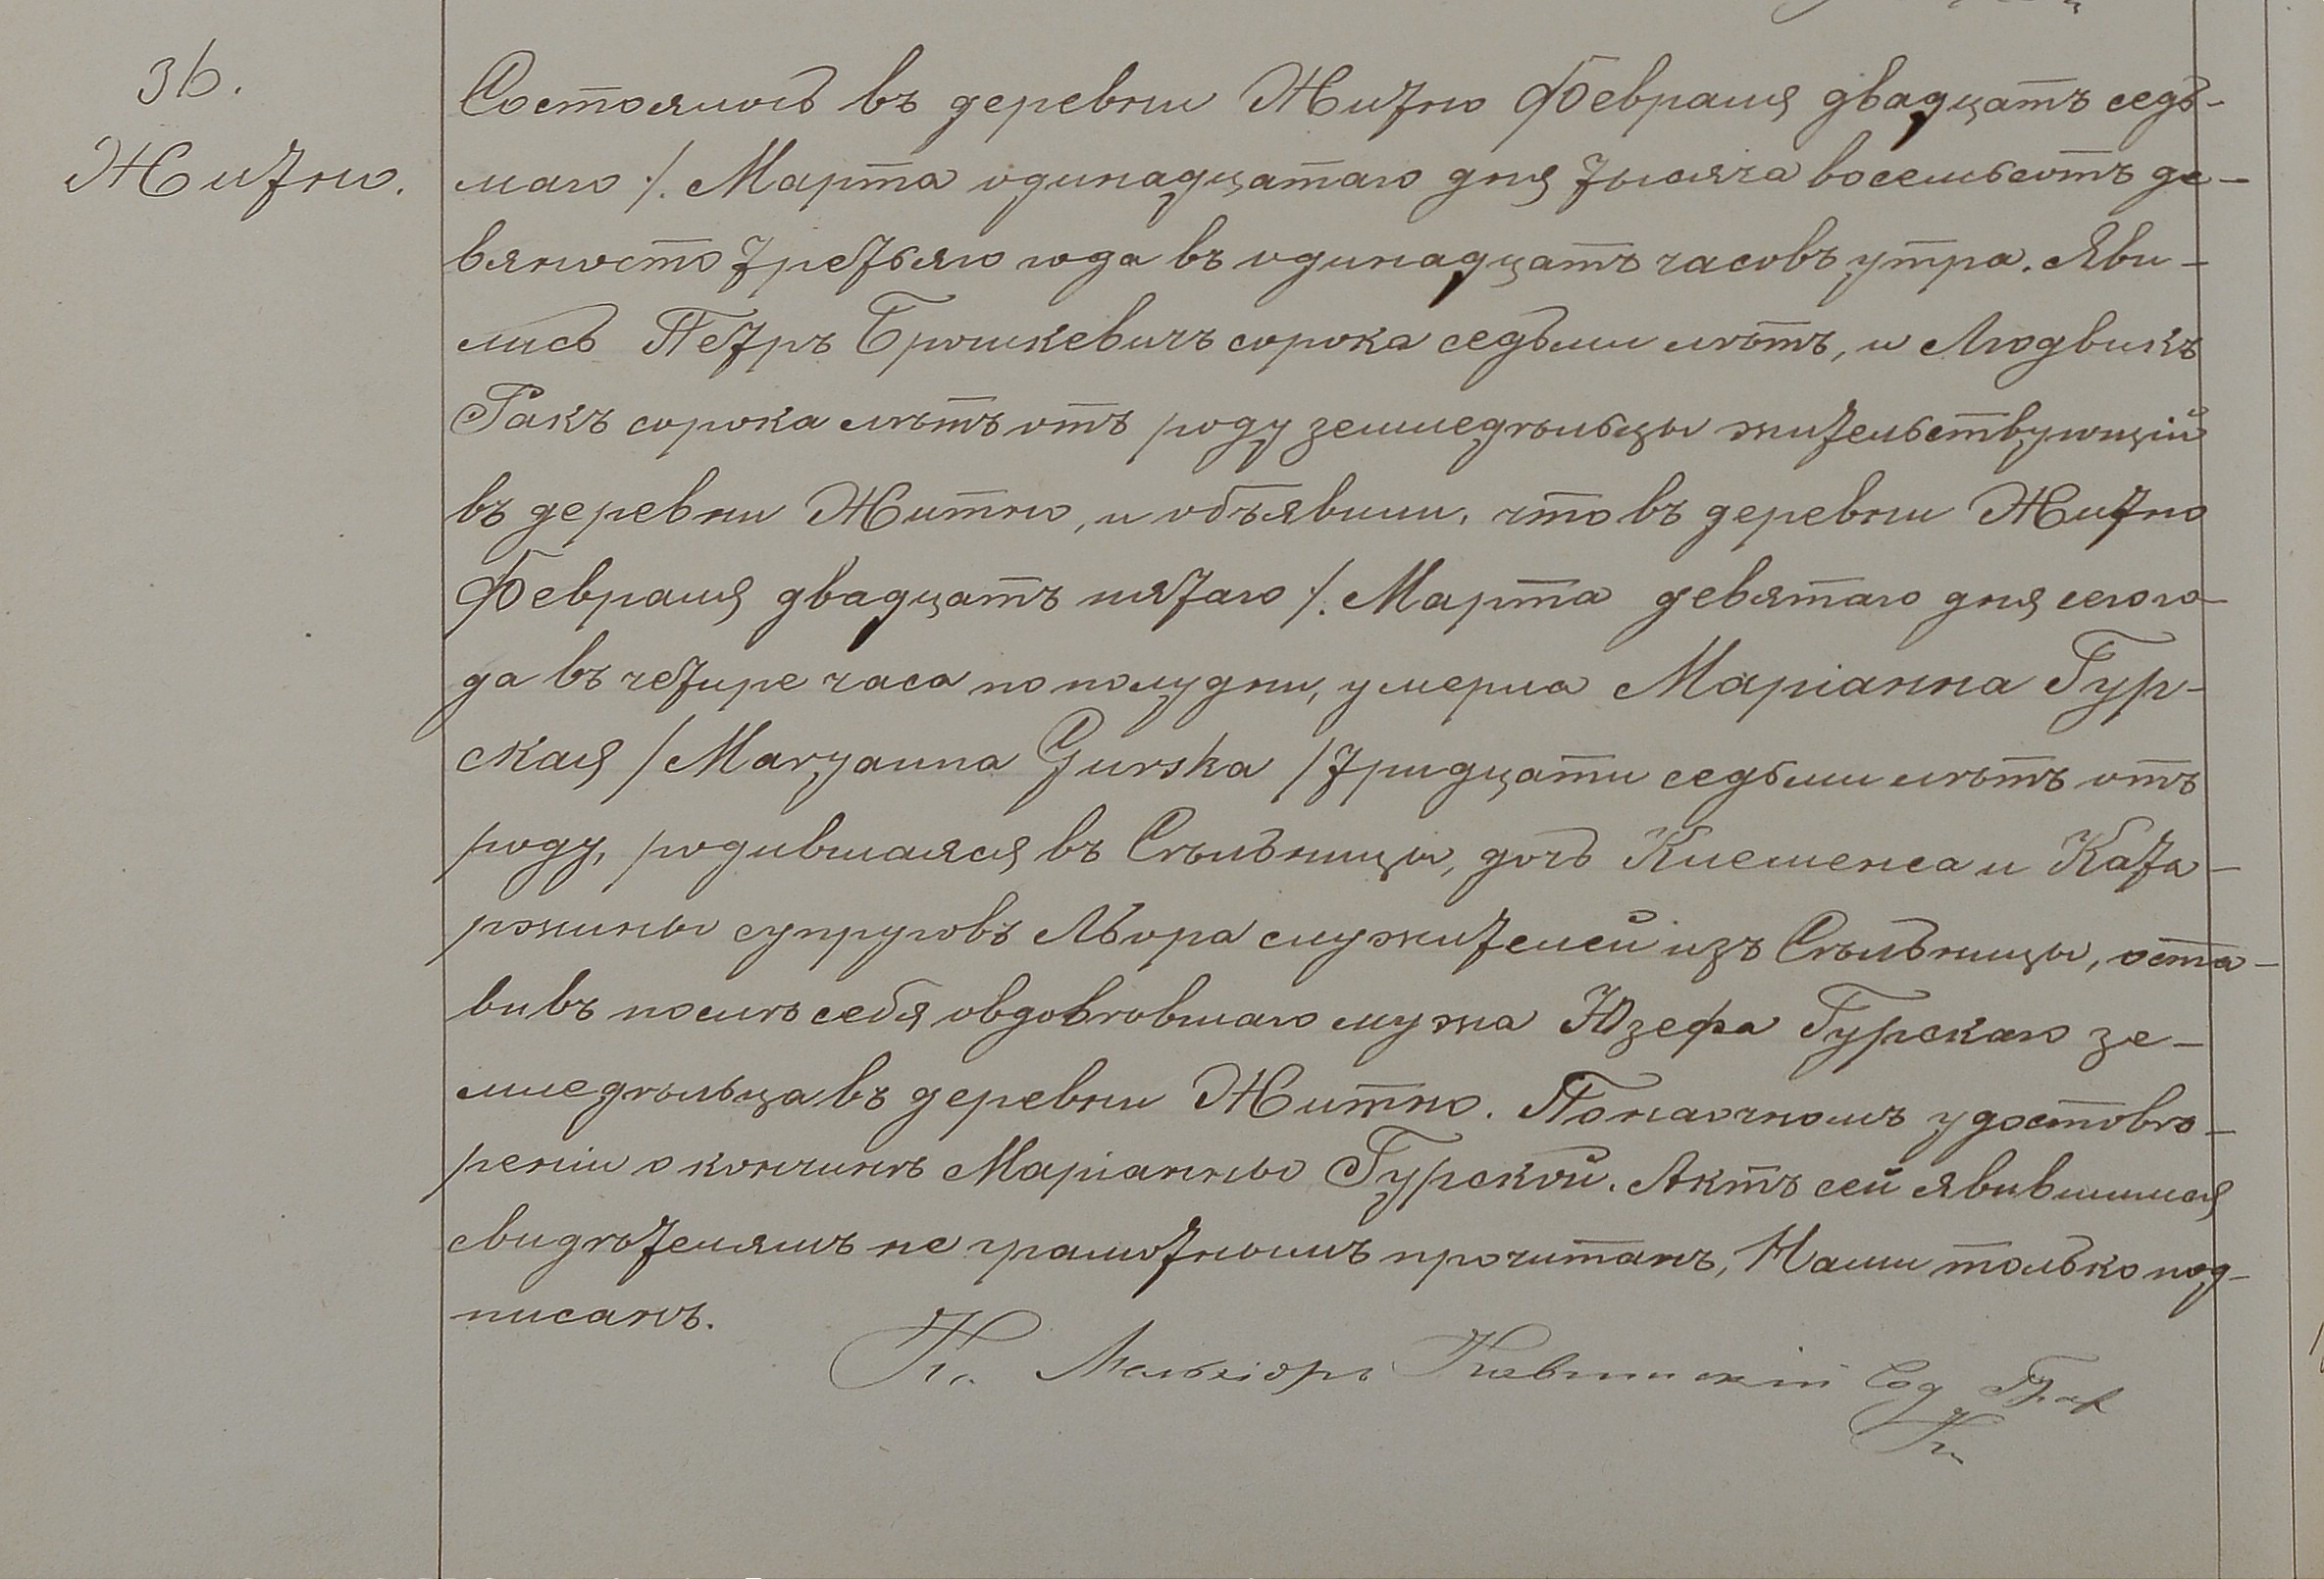 36.
Житно.
Состоялось въ деревни Житно Февраля двадцать седь-
маго /. Марта одинадцатаго дня тысяча восемьсотъ де-
вяносто третьяго года въ одинадцать часовъ утра. Яви-
лись Петръ Брошкевичъ сорока седьми лѣтъ, и Людвикъ
Ракъ сорока лѣтъ отъ роду земледѣльцы жительствующій
въ деревни Житно, и объявили, что въ деревни Житно
Февраля двадцать пятаго /. Марта девятаго дня сего го-
да въ четыре часа по полудни, умерла Маріанна Гур-
ская /Maryanna Gurska/ тридцати седьми лѣтъ отъ
роду, родившаяся въ Сѣльницы, дочь Клеменса и Ката-
ржины супруговъ служителей изъ Сѣльницы, оста-
вивъ послѣ себя овдовѣвшаго мужа Юзефа Гурскаго зе-
мледѣльца въ деревни Житно. По наочномъ удостовѣ-
реніи о кончинѣ Маріанны Гурской. Актъ сей явившимся
свидѣтелямъ не грамотнымъ прочитанъ, Нами только под-
писанъ.
Кс. Мельхіоръ Сод